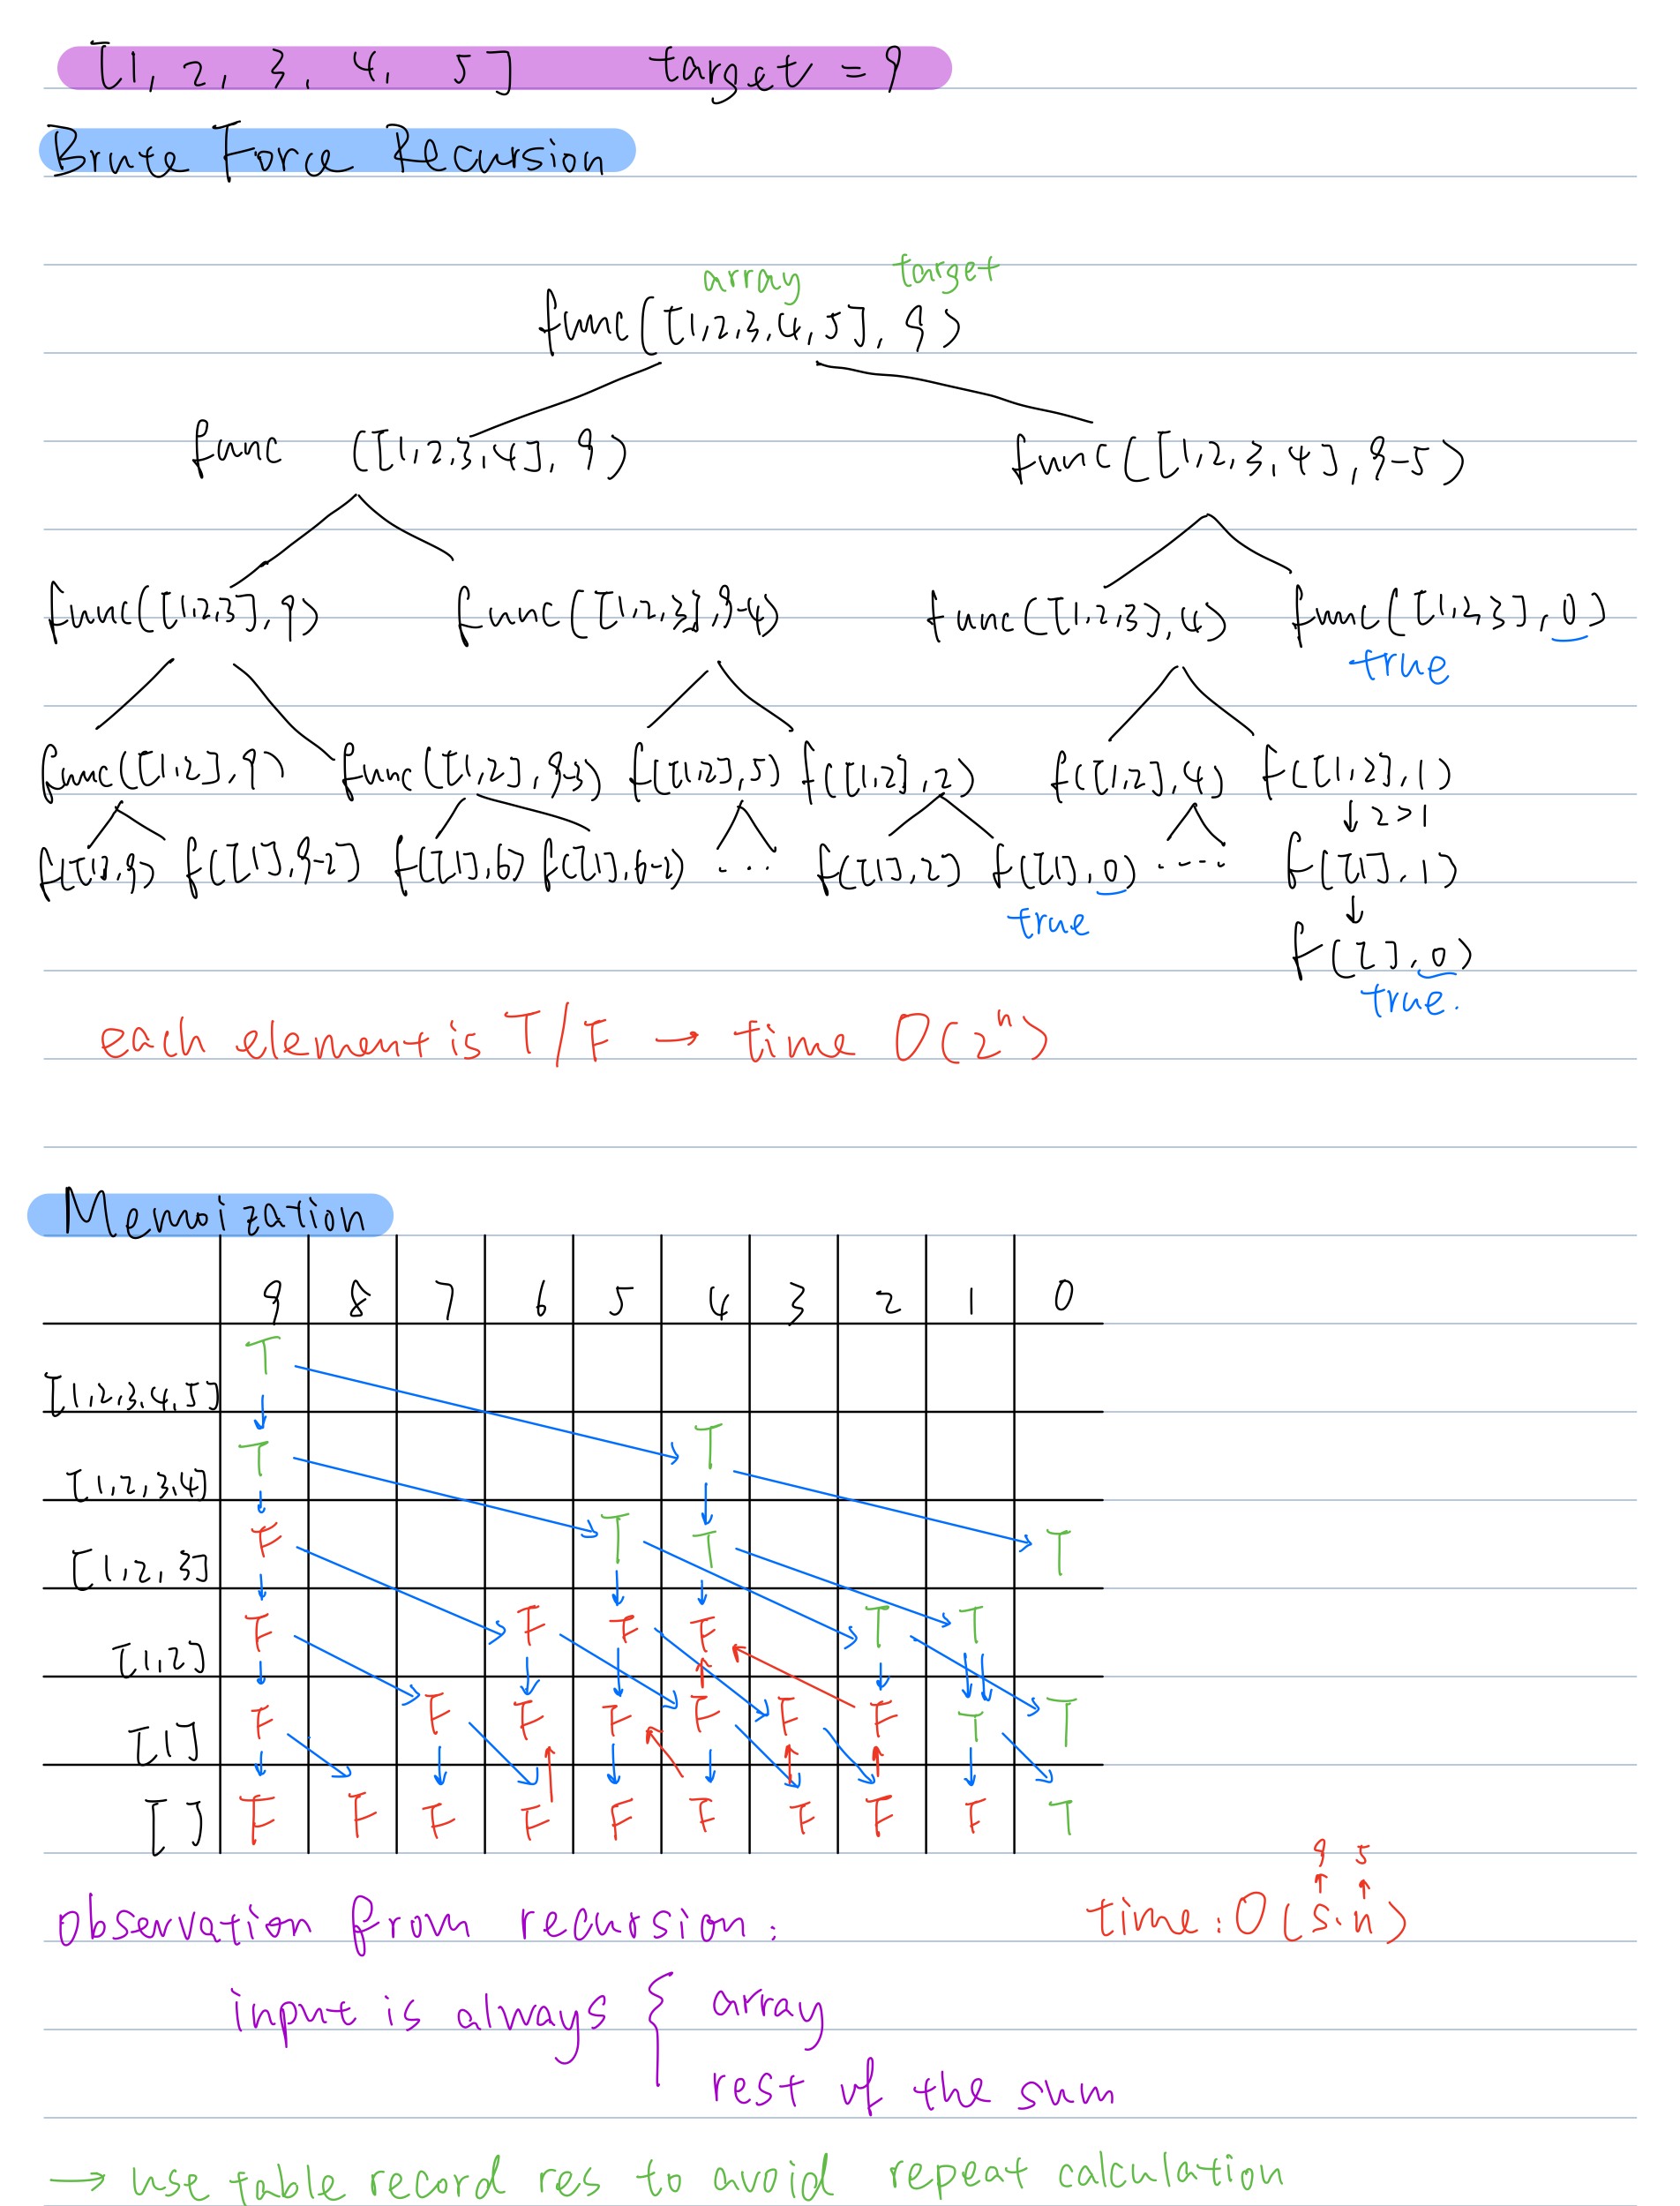 [1, 2, 3, 4, 5] target = 9
Brute Force Recursion
array target
func([1,2,3,4,5], 9)
func ([1,2,3,4], 9) func([1,2,3,4], 9-5)
func([1,2,3], 9) func([1,2,3],9-4) func([1,2,3],4) func([1,2,3],0)
true
func([1,2],9) func([1,2],9-3) f([1,2],5) f([1,2],2) f([1,2],4) f([1,2],1)
↓ 2>1
f([1],9) f([1],9-2) f([1],6) f([1],6-2) ... f([1],2) f([1],0) .... f([1],1)
true ↓
f([],0)
true.
each element is T/F → time O(2ⁿ)
Memoization
9 8 7 6 5 4 3 2 1 0
[1,2,3,4,5] T
[1,2,3,4] T T
[1,2,3] F T T T
[1,2] F F F F T T
[1] F F F F F F F T T
[ ] F F F F F F F F F T
9 5
↑ ↑
observation from recursion: time: O(s·n)
input is always { array
rest of the sum
→ use table record res to avoid repeat calculation